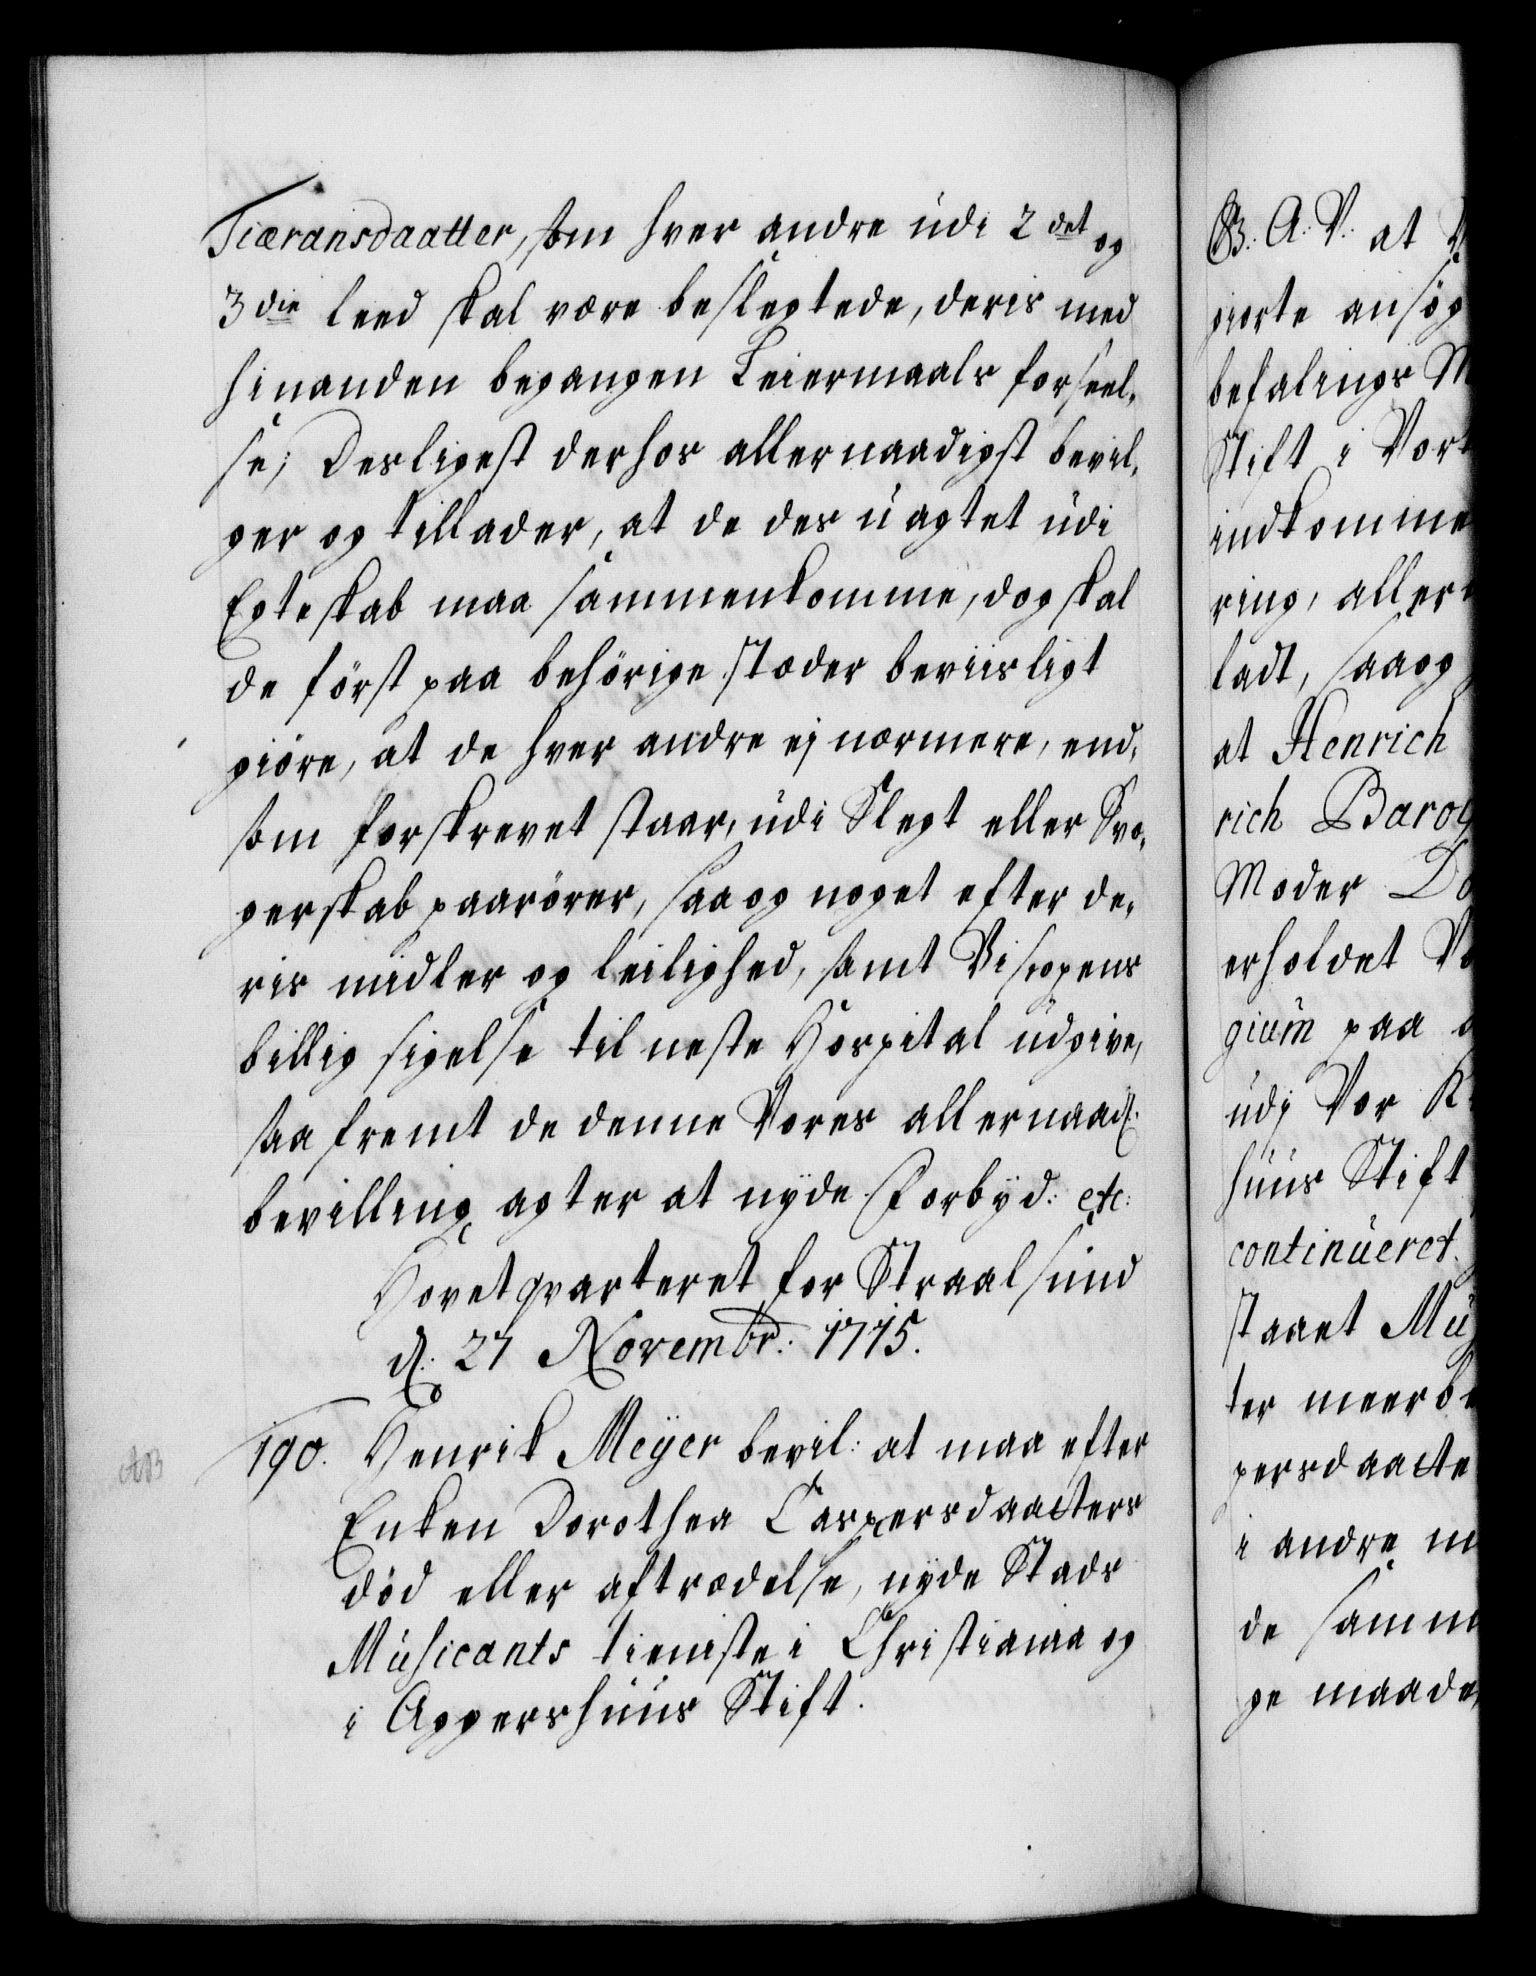 Tiæransdaatter, som hver andre udi 2det og
3die leed skal være beslegtede, deris med
hinanden begangen Leiermaals forseel,
se; Desligest derhos allernaadigst bevil,
ger og tillader, at de des uagtet udi
Egteskab maa sammenkomme, dog skal
de først paa behörige stæder beviisligt
giöre, at de hver andre ej nærmere, end,
som forskrevet staar, udi Slegt eller Svo,
gerskab paarörer, saa og noget efter de,
ris midler og leilighed, samt Biscopens
billig sigelse til neste Hospital udgive,
saa fremt de denne Vores allernaad:
bevilling agter at nyde. Forbyd: etc:
Hovetqvarteret for Straalsund
d: 27 Novembr: 1715.
190. Henrik Meyer bevil: at maa efter
Enken Dorothea Caspersdaatters
död eller aftrædelse, nyde Stads
Musicants tieniste i Christiania og
i Aggershuus Stift.
G: A: V: at
giorte ansög
befalings M
Stift i Vort
indkomme
ring, aller
ladt, saa og
at Henrich
rich Barog
Moder Do
erholdet Vo
gium paa
udj Vor K
huus Stift
continueret
staaet Mu
ter meerbe
persdaatte
i andre m
de samm
ge maade,